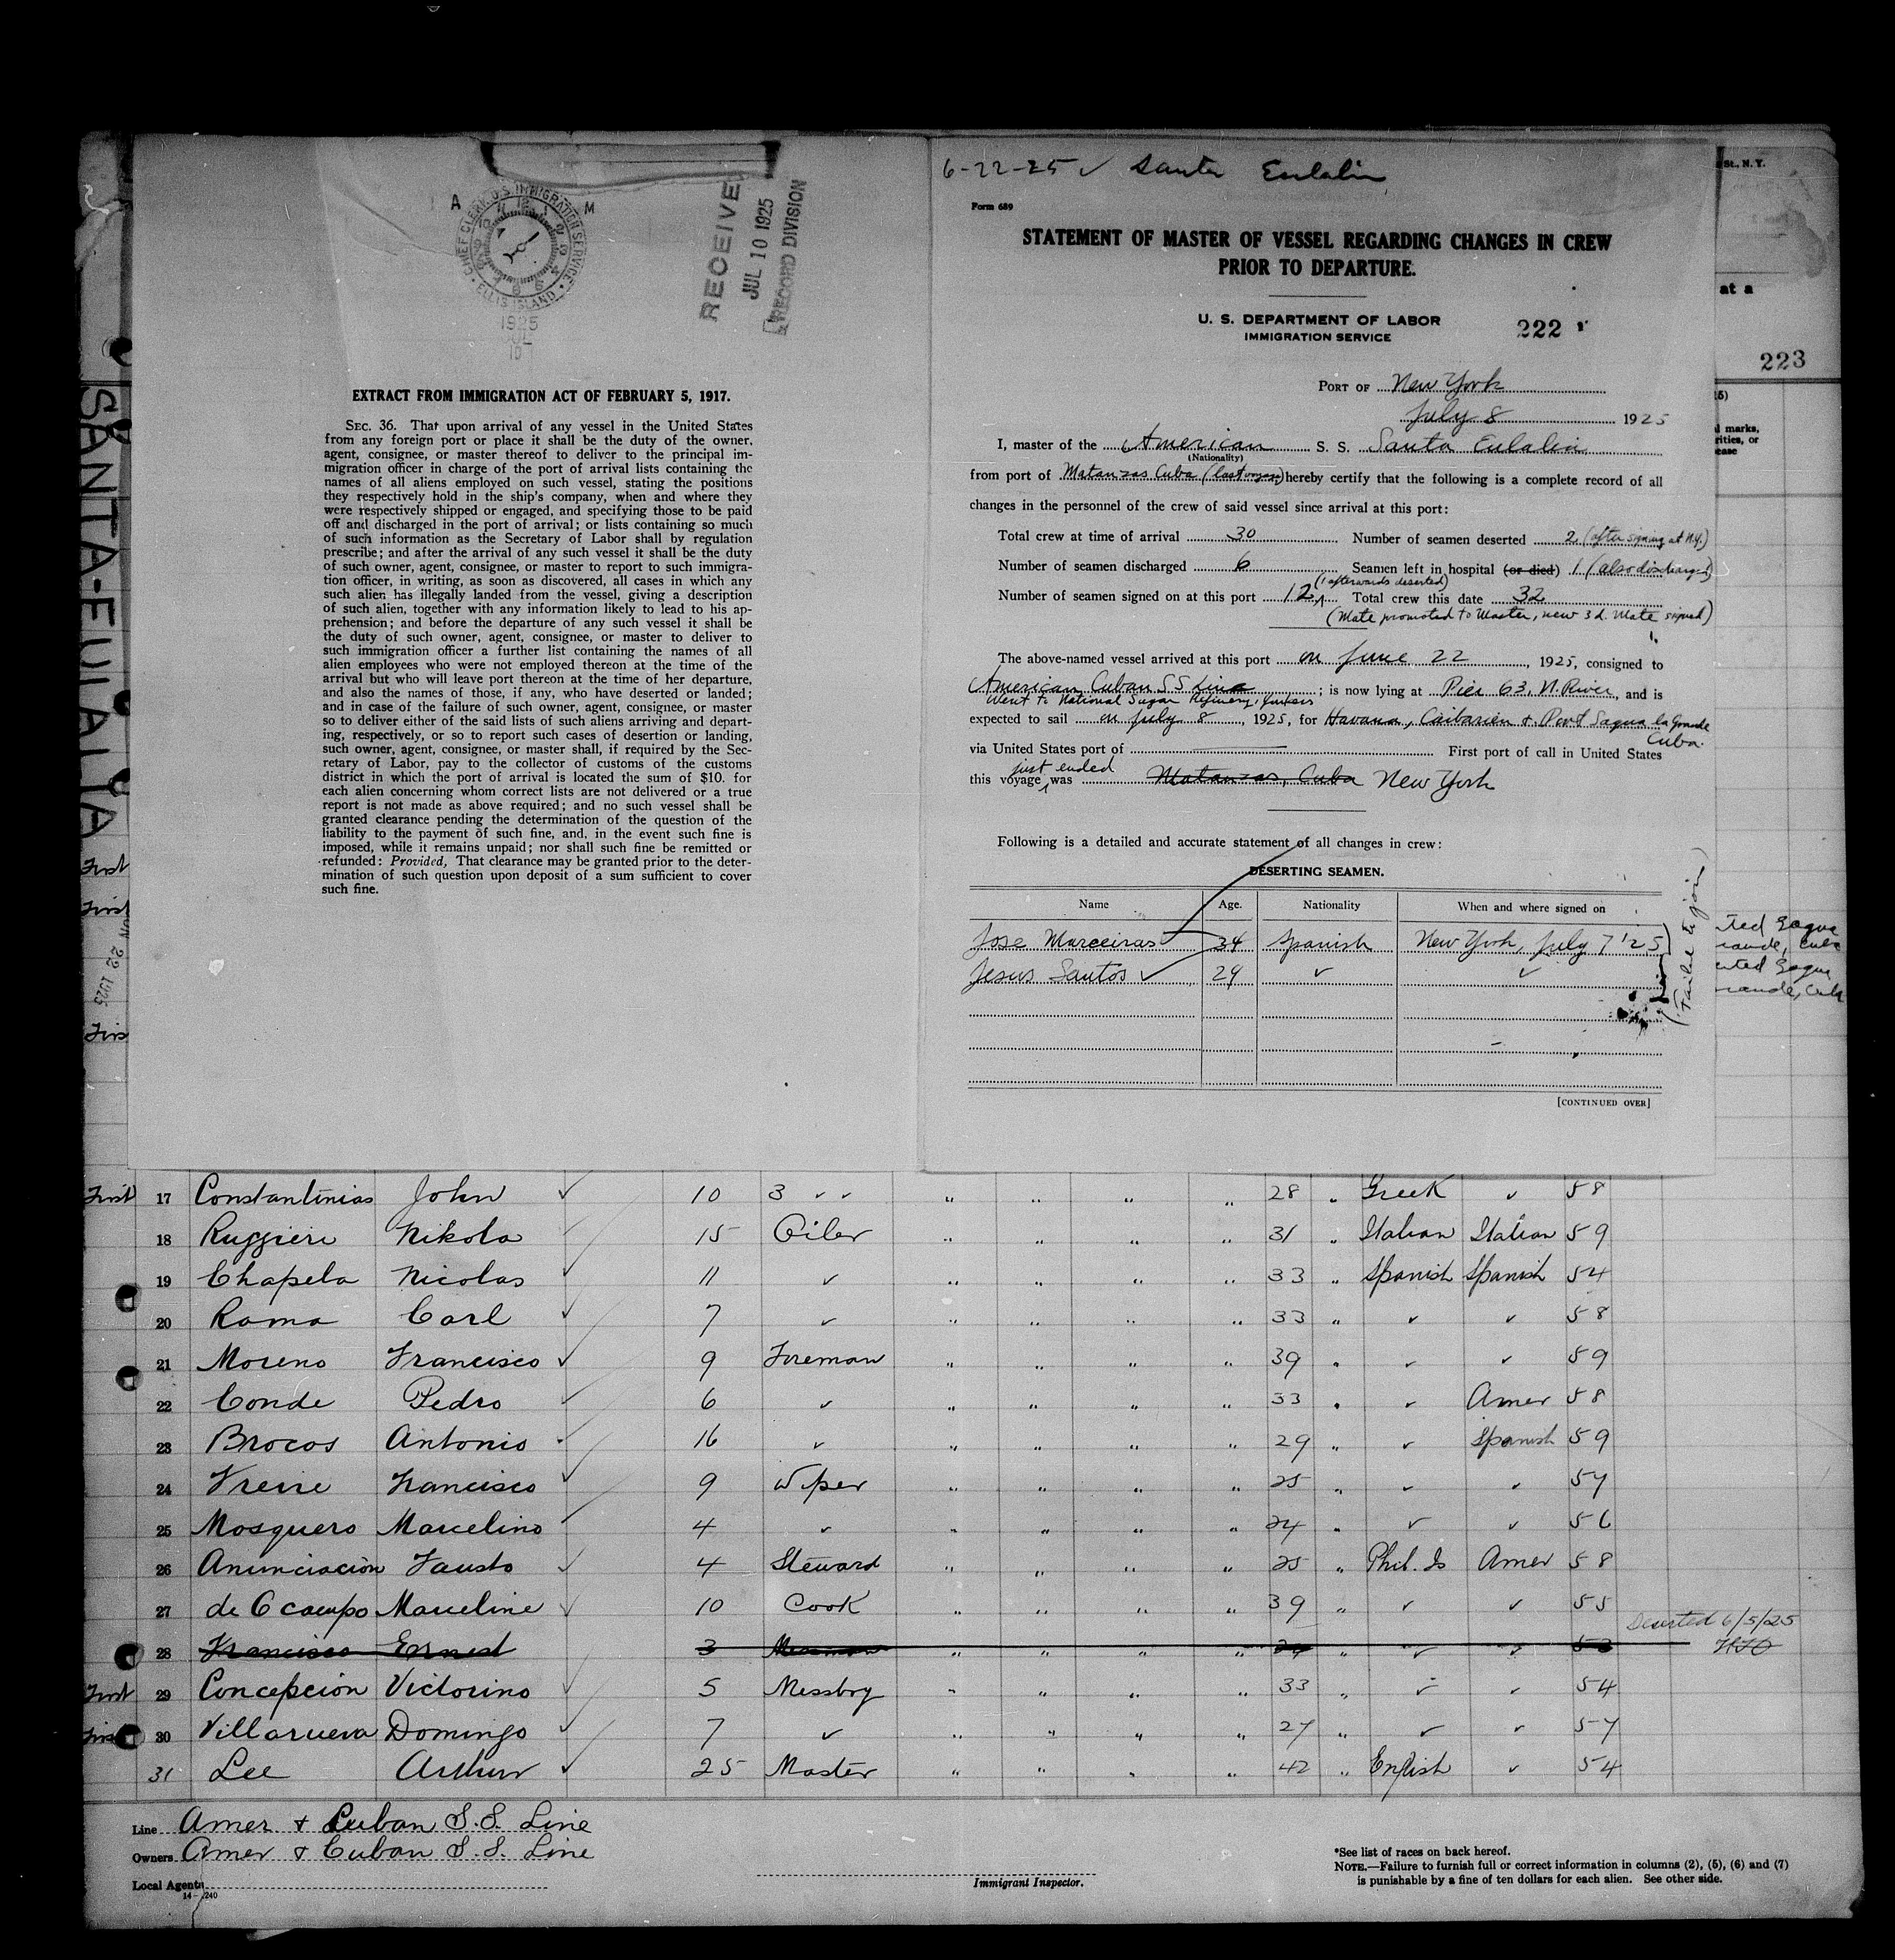 SANTA-EULALIA
First
First
JUN 22 1925
Firs
A M
CHIEF CLERK U.S. IMMIGRATION SERVICE
ELLIS ISLAND
1925
JUL
10
RECEIVED
JUL 10 1925
RECORD DIVISION
EXTRACT FROM IMMIGRATION ACT OF FEBRUARY 5, 1917.
SEC. 36. That upon arrival of any vessel in the United States
from any foreign port or place it shall be the duty of the owner,
agent, consignee, or master thereof to deliver to the principal im-
migration officer in charge of the port of arrival lists containing the
names of all aliens employed on such vessel, stating the positions
they respectively hold in the ship's company, when and where they
were respectively shipped or engaged, and specifying those to be paid
off and discharged in the port of arrival; or lists containing so much
of such information as the Secretary of Labor shall by regulation
prescribe; and after the arrival of any such vessel it shall be the duty
of such owner, agent, consignee, or master to report to such immigra-
tion officer, in writing, as soon as discovered, all cases in which any
such alien has illegally landed from the vessel, giving a description
of such alien, together with any information likely to lead to his ap-
prehension; and before the departure of any such vessel it shall be
the duty of such owner, agent, consignee, or master to deliver to
such immigration officer a further list containing the names of all
alien employees who were not employed thereon at the time of the
arrival but who will leave port thereon at the time of her departure,
and also the names of those, if any, who have deserted or landed;
and in case of the failure of such owner, agent, consignee, or master
so to deliver either of the said lists of such aliens arriving and depart-
ing, respectively, or so to report such cases of desertion or landing,
such owner, agent, consignee, or master shall, if required by the Sec-
retary of Labor, pay to the collector of customs of the customs
district in which the port of arrival is located the sum of $10. for
each alien concerning whom correct lists are not delivered or a true
report is not made as above required; and no such vessel shall be
granted clearance pending the determination of the question of the
liability to the payment of such fine, and, in the event such fine is
imposed, while it remains unpaid; nor shall such fine be remitted or
refunded: Provided, That clearance may be granted prior to the deter-
mination of such question upon deposit of a sum sufficient to cover
such fine.
6-22-25 ✓ Santa Eulalia
Form 689
STATEMENT OF MASTER OF VESSEL REGARDING CHANGES IN CREW
PRIOR TO DEPARTURE.
U. S. DEPARTMENT OF LABOR
IMMIGRATION SERVICE
222
PORT OF New York
July 8 1925
I, master of the American S. S. Santa Eulalia
(Nationality)
from port of Matanzas Cuba (last voyage) hereby certify that the following is a complete record of all
changes in the personnel of the crew of said vessel since arrival at this port:
Total crew at time of arrival 30 Number of seamen deserted 2 (after signing at N.Y.)
Number of seamen discharged 6 Seamen left in hospital (or died) 1 (also discharged)
(1 afterwards deserted)
Number of seamen signed on at this port 12 Total crew this date 32
(Mate promoted to Master, new 3d. Mate signed)
The above-named vessel arrived at this port on June 22, 1925, consigned to
American Cuban S S Line; is now lying at Pier 63, N. River, and is
Went to National Sugar Refinery, Yonkers
expected to sail on July 8, 1925, for Havana, Caibarien & Port Sagua la Grande
Cuba.
via United States port of First port of call in United States
just ended
this voyage was Matanzas, Cuba New York
Following is a detailed and accurate statement of all changes in crew:
DESERTING SEAMEN.
Name Age. Nationality When and where signed on
Jose Marceiras 34 Spanish New York, July 7 '25
Jesus Santos ✓ 29 ✓ ✓
(Failed to join)
[CONTINUED OVER]
St., N. Y.
at a
223
marks,
rities, or
ease
ted Sagua
rande, Cuba
rted Sagua
rande, Cuba
First 17 Constantinias John ✓ 10 3 ✓ ✓ " " " " 28 " Greek ✓ 58
18 Ruggieri Nikola ✓ 15 Oiler " " " " 31 " Italian Italian 59
19 Chapela Nicolas ✓ 11 ✓ " " " " 33 " Spanish Spanish 54
20 Roma Carl ✓ 7 ✓ " " " " 33 " ✓ ✓ 58
21 Moreno Francisco ✓ 9 Fireman " " " " 39 " ✓ ✓ 59
22 Conde Pedro ✓ 6 ✓ " " " " 33 " ✓ Amer 58
23 Brocos Antonio 16 ✓ " " " " 29 " ✓ Spanish 59
24 Freire Francisco ✓ 9 Wiper " " " " 25 " ✓ ✓ 57
25 Mosquero Marcelino ✓ 4 ✓ " " " " 24 " ✓ ✓ 56
26 Anunciacion Fausto ✓ 4 Steward " " " " 25 " Phil. Is Amer 58
27 de Ocampo Marceline ✓ 10 Cook " " " " 39 " ✓ ✓ 55
Deserted 6/5/25
28 Francisco Ernest 3 Messman " " " " 24 " ✓ ✓ 53
First 29 Concepcion Victorino ✓ 5 Messboy " " " " 33 " ✓ ✓ 54
First 30 Villarueva Domingo ✓ 7 ✓ " " " " 27 " ✓ ✓ 57
31 Lee Arthur ✓ 25 Master " " " " 42 " English ✓ 54
Line Amer & Cuban S.S. Line
Owners Amer & Cuban S.S. Line
Local Agents
14-1240
Immigrant Inspector.
*See list of races on back hereof.
NOTE.—Failure to furnish full or correct information in columns (2), (5), (6) and (7)
is punishable by a fine of ten dollars for each alien. See other side.